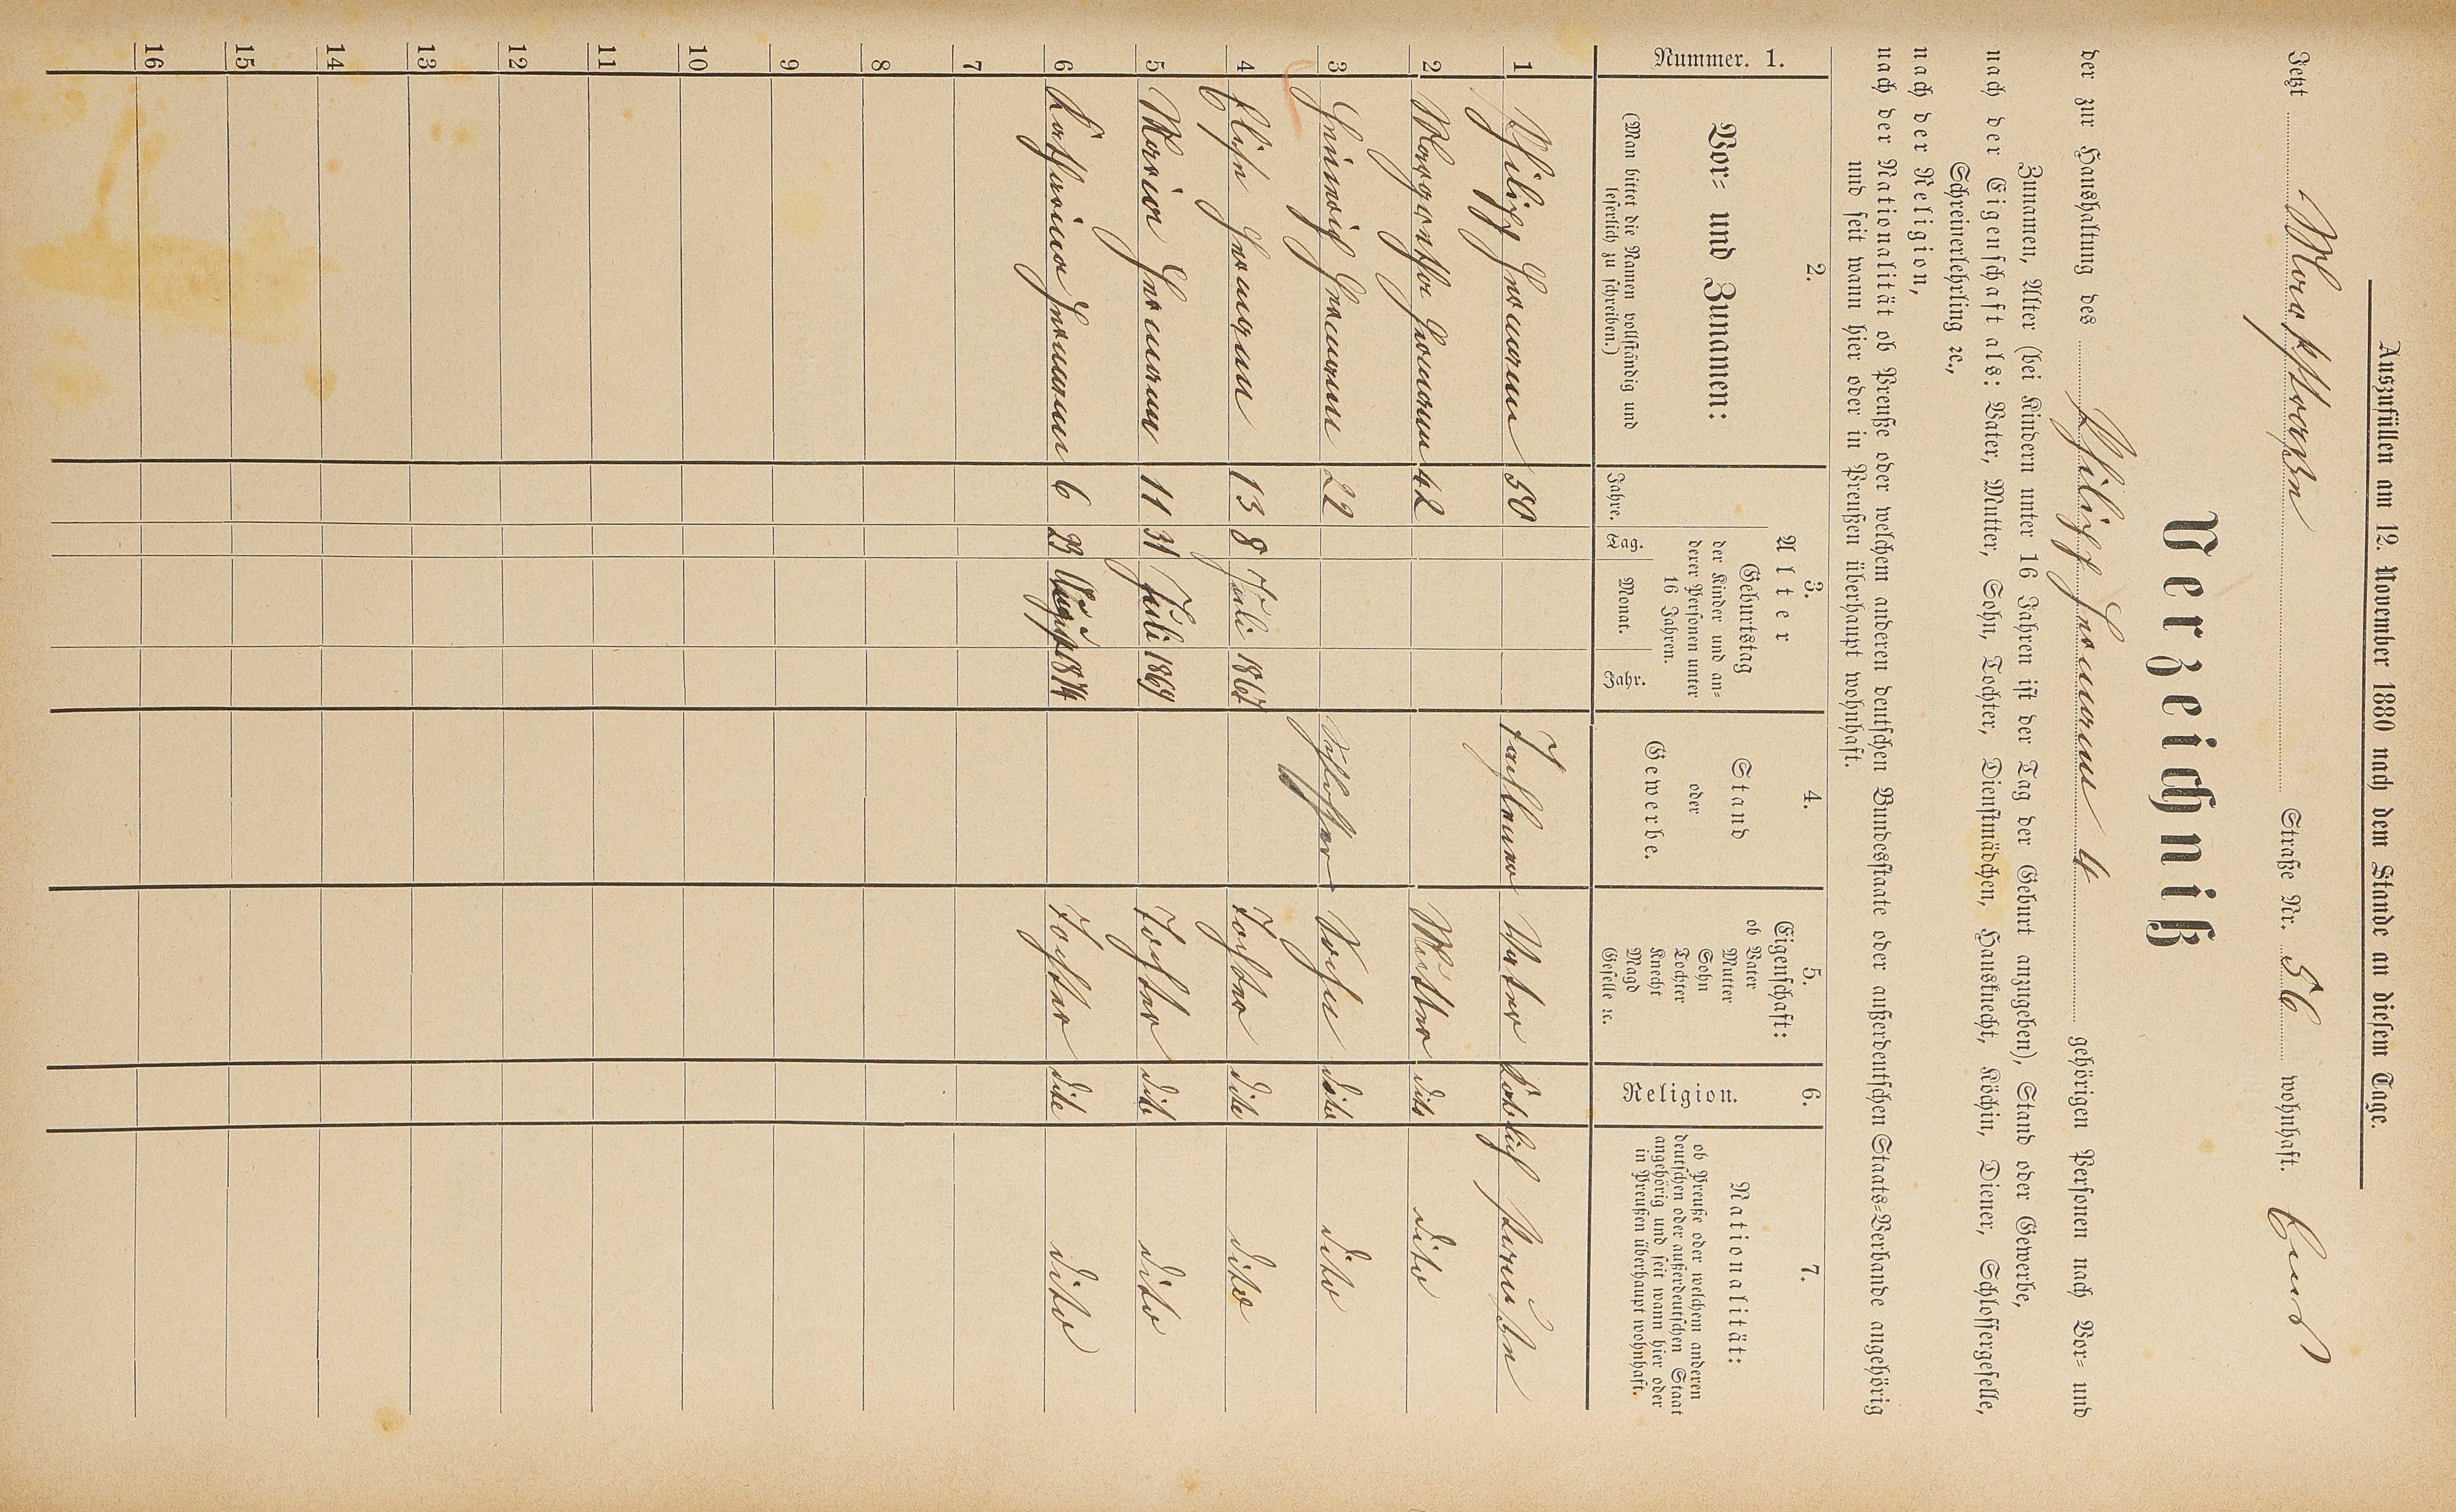 Auszufüllen am 12. November 1880 nach dem Stande an diesem Tage.
Jetzt Marktstraße Straße Nr. 56 wohnhaft. Ems
Verzeichniß
der zur Haushaltung des Philipp 4 gehörigen Personen nach Vor- und
Zunamen, Alter (bei Kindern unter 16 Jahren ist der Tag der Geburt anzugeben), Stand oder Gewerbe,
nach der Eigenschaft als: Vater, Mutter, Sohn, Tochter, Dienstmädchen, Hausknecht, Köchin, Diener, Schlossergeselle,
Schreinerlehrling ꝛc.,
nach der Religion,
nach der Nationalität ob Preuße oder welchem anderen deutschen Bundesstaate oder außerdeutschen Staats-Verbande angehörig
und seit wann hier oder in Preußen überhaupt wohnhaft.
Nummer. 1.
2.
Vor- und Zunamen:
(Man bittet die Namen vollständig und
leserlich zu schreiben.)
3.
Alter
Jahre.
Geburtstag
der Kinder und an-
derer Personen unter
16 Jahren.
Tag. Monat. Jahr.
4.
Stand
oder
Gewerbe.
5.
Eigenschaft:
ob Vater
Mutter
Sohn
Tochter
Knecht
Magd
Geselle ꝛc.
6.
Religion.
7.
Nationalität:
ob Preuße oder welchem anderen
deutschen oder außerdeutschen Staat
angehörig und seit wann hier oder
in Preußen überhaupt wohnhaft.
1 Philipp 50 Vater Preuße
2 Margaretha 42 Mutter dito dito
3 22 Schlosser Sohn dito dito
4 Elise 13 8 Juli 1867 Tochter dito dito
5 Maria 11 31 Juli 1869 Tochter dito dito
6 Katharina 6 23 August 1874 Tochter dito dito
7
8
9
10
11
12
13
14
15
16